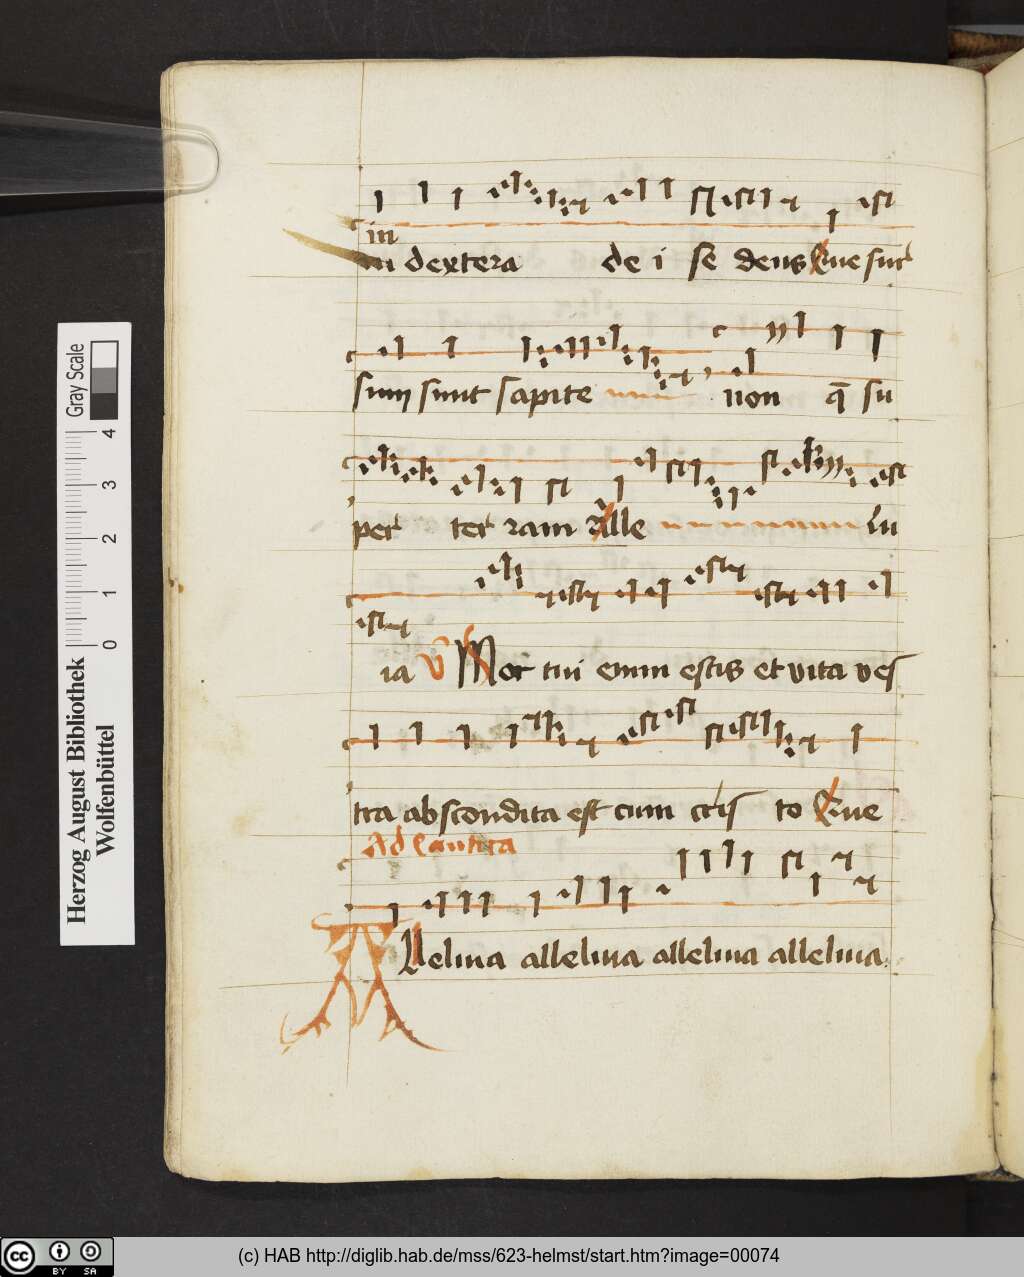 in
in dextera de i se dens Que sur
sum sunt sapite non q̄ su
per ter ram Alle lu
ia v̄ Mor tui enim estis et vita ves
tra abscondita est cum cris to Que
Ad Laudes
Alleluia alleluia alleluia alleluia
Gray Scale
0 1 2 3 4
Herzog August Bibliothek
Wolfenbüttel
cc BY SA
(c) HAB http://diglib.hab.de/mss/623-helmst/start.htm?image=00074